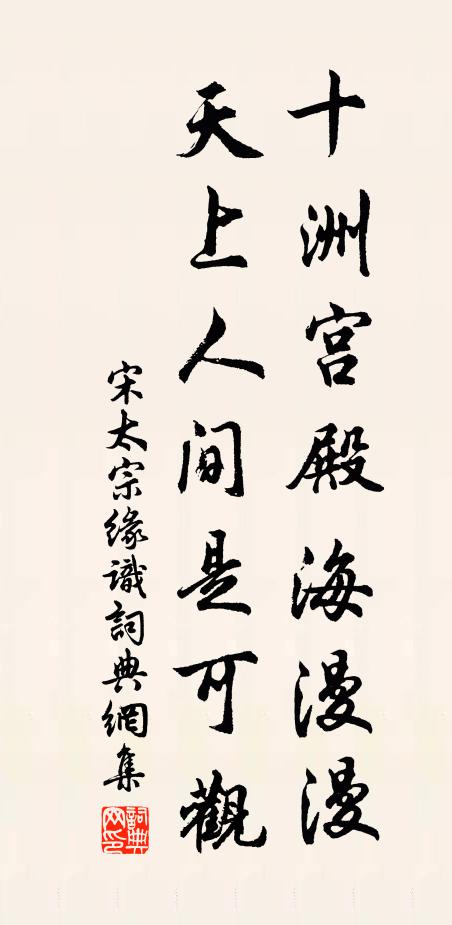 十洲宫殿海漫漫
天上人间是可觀
宋太宗缘識詞典網集
詞典网印